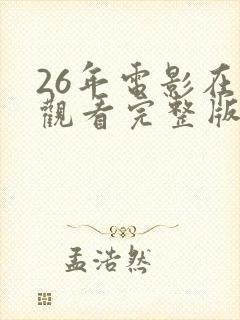 26年電影在
觀看完整版
孟浩然